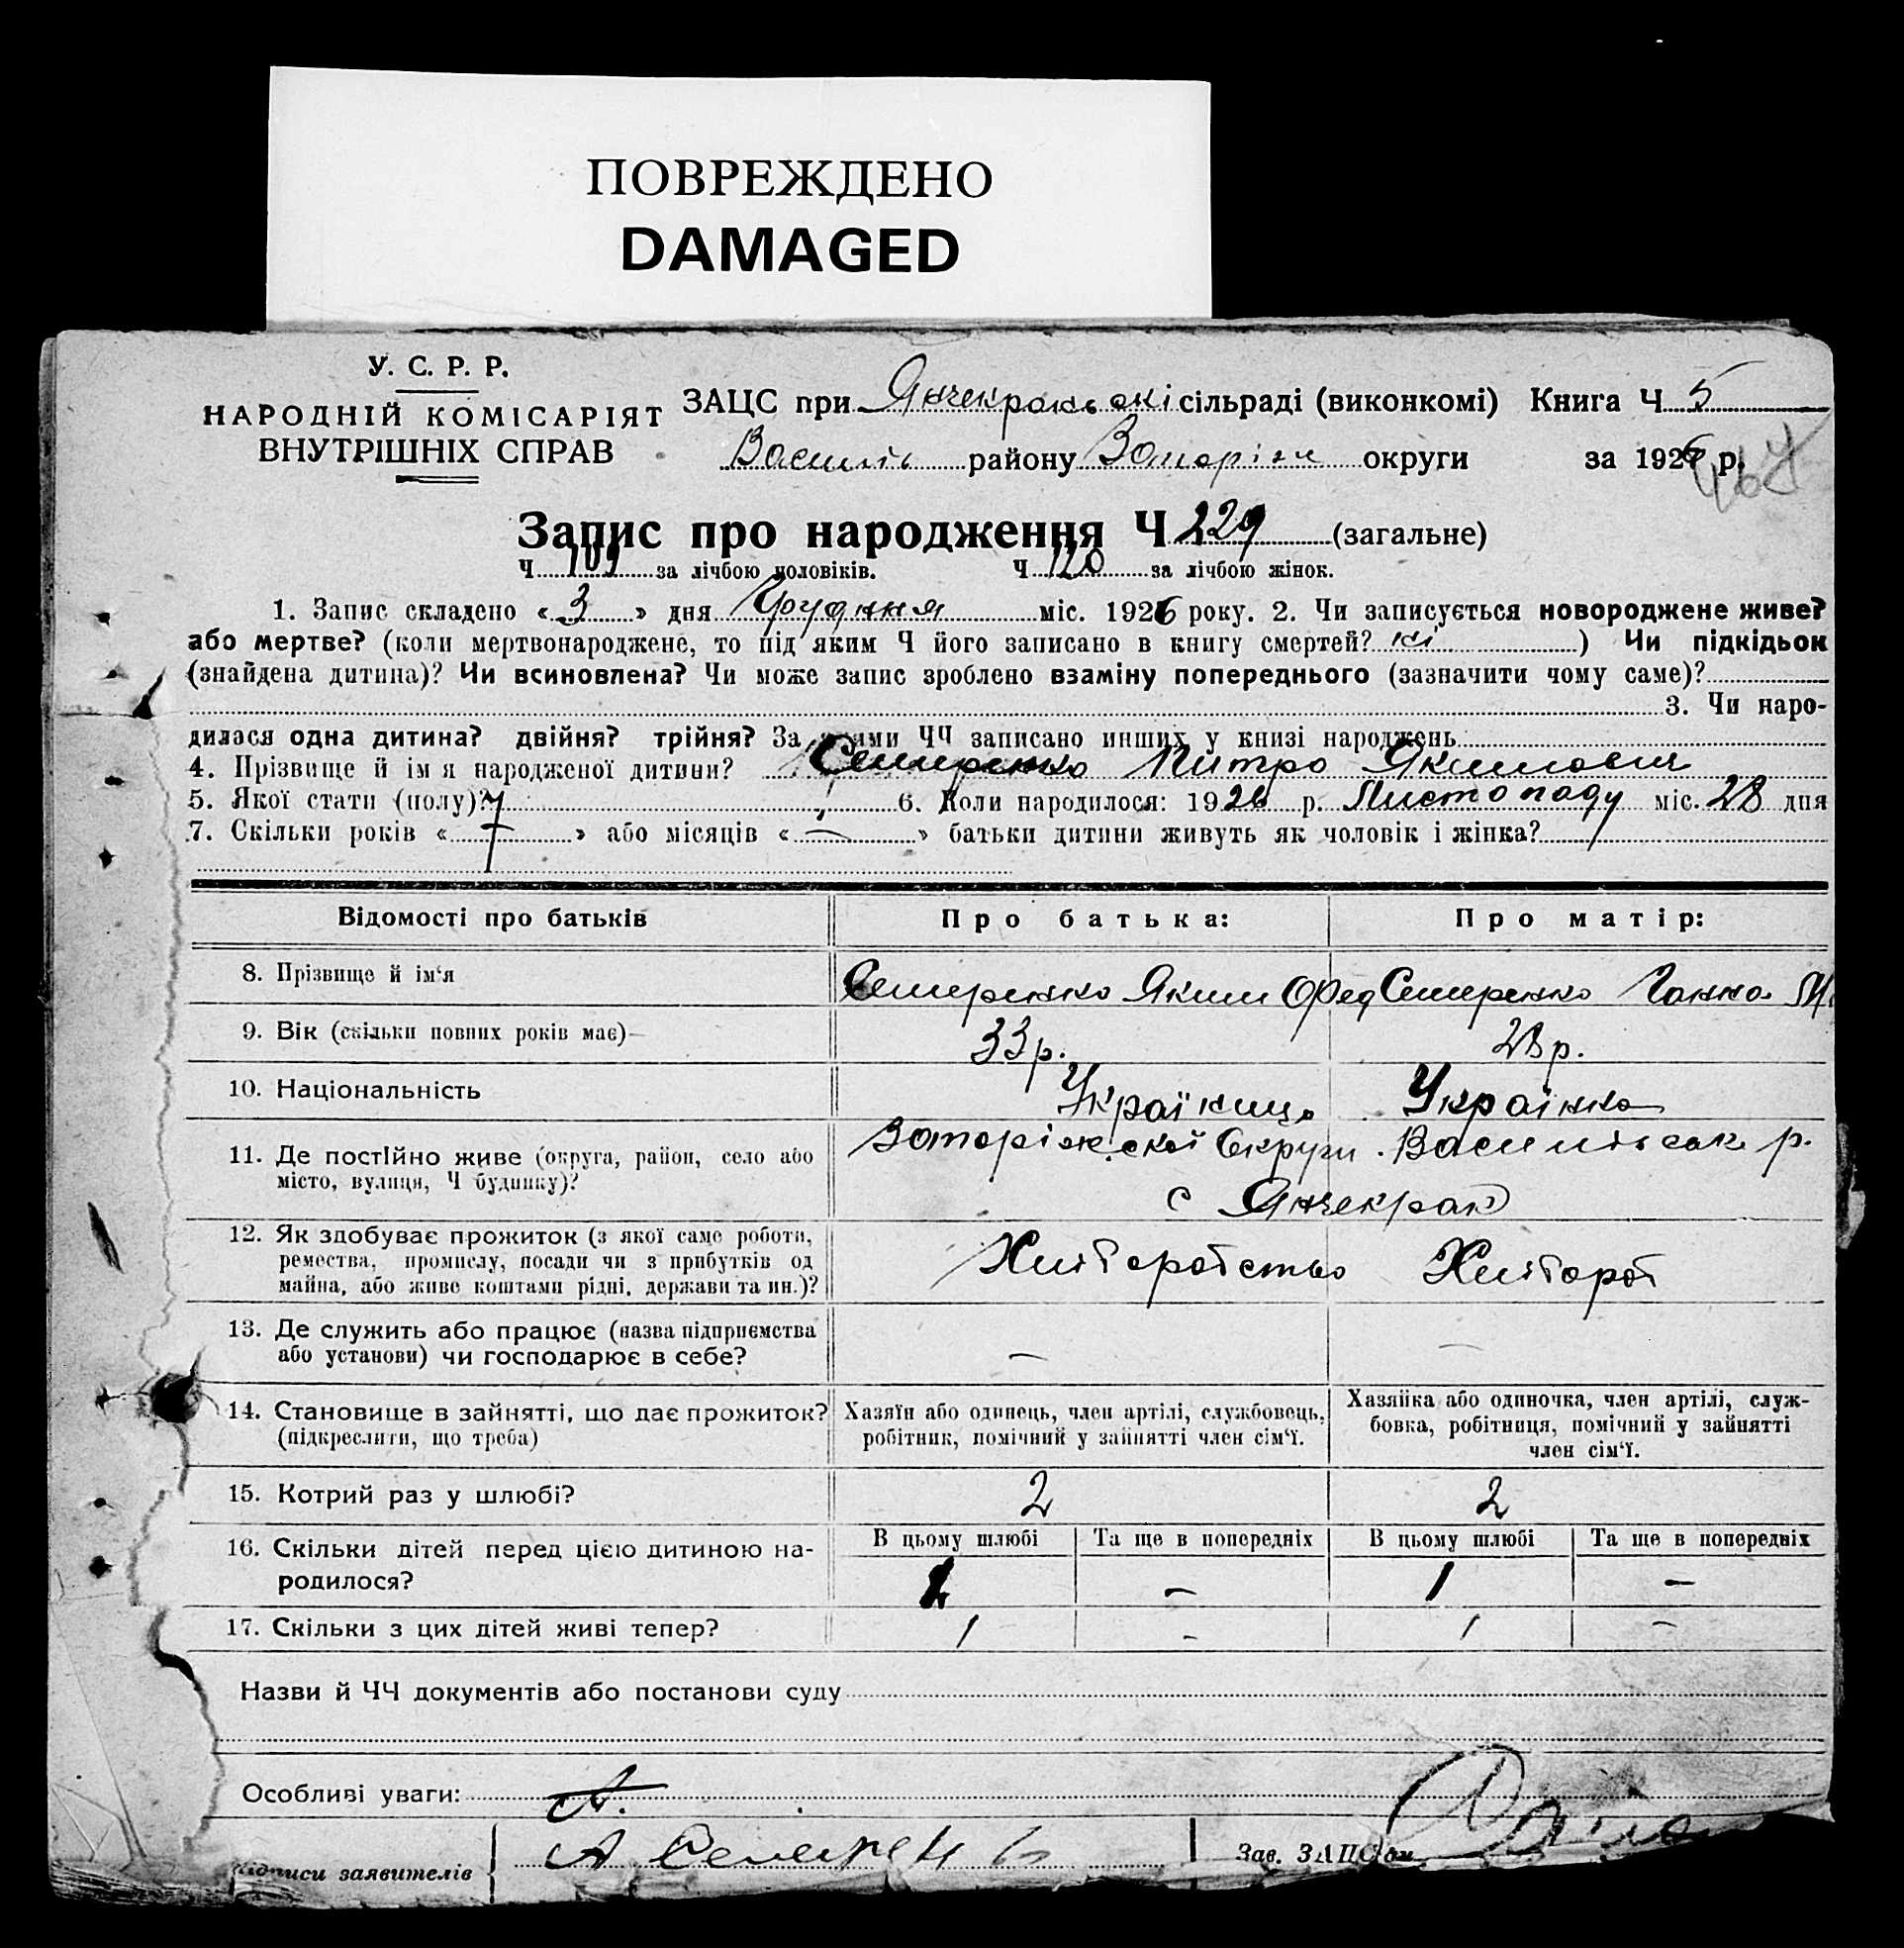 ПОВРЕЖДЕНО
DAMAGED
У. С. Р. Р.
НАРОДНІЙ КОМІСАРІЯТ
ВНУТРІШНІХ СПРАВ
ЗАЦС при Янчекракській сільраді (виконкомі) Книга Ч 5
Василь району Запоріж округи за 1926 р.
Запис про народження Ч 229 (загальне)
Ч 109 за лічбою чоловіків. Ч 120 за лічбою жінок.
1. Запис складено « 3 » дня Грудня міс. 1926 року. 2. Чи записується новороджене живе?
або мертве? (коли мертвонароджене, то під яким Ч його записано в книгу смертей? ) Чи підкідьок
(знайдена дитина)? Чи всиновлена? Чи може запис зроблено взаміну попереднього (зазначити чому саме)?
3. Чи наро-
дилася одна дитина? двійня? трійня? За якими ЧЧ записано инших у книзі народжень
4. Прізвище й ім я народженої дитини? Семеренко Митро Якимович
5. Якої стати (полу)? Ч 6. Коли народилося: 1926 р. Листопаду міс. 28 дня
7. Скільки років « 7 » або місяців « — » батьки дитини живуть як чоловік і жінка?
Відомості про батьків
Про батька:
Про матір:
8. Прізвище й ім‘я
Семеренко Яким Фед
Семеренко Ганна М
9. Вік (скільки повних років має)—
33р.
28р.
10. Національність
Українець
Українка
11. Де постійно живе (округа, район, село або
місто, вулиця, Ч будинку)?
Запоріжской Округи. Васильвськ р.
с Янчекрак
12. Як здобуває прожиток (з якої саме роботи,
ремества, промислу, посади чи з прибутків од
майна, або живе коштами рідні, держави та ин.)?
Хліборобство
Хлібороб
13. Де служить або працює (назва підприємства
або установи) чи господарює в себе?
—
—
14. Становище в зайнятті, що дає прожиток?
(підкреслити, що треба)
Хазяїн або одинець, член артілі, службовець,
робітник, помічний у зайнятті член сім‘ї.
Хазяйка або одиночка, член артілі, служ-
бовка, робітниця, помічний у зайнятті
член сім‘ї.
15. Котрий раз у шлюбі?
2
2
16. Скільки дітей перед цією дитиною на-
родилося?
В цьому шлюбі
Та ще в попередніх
В цьому шлюбі
Та ще в попередніх
1
—
1
—
17. Скільки з цих дітей живі тепер?
1
-
1
-
Назви й ЧЧ документів або постанови суду
Особливі уваги:
Підписи заявителів
Зав. ЗАЦС'ом